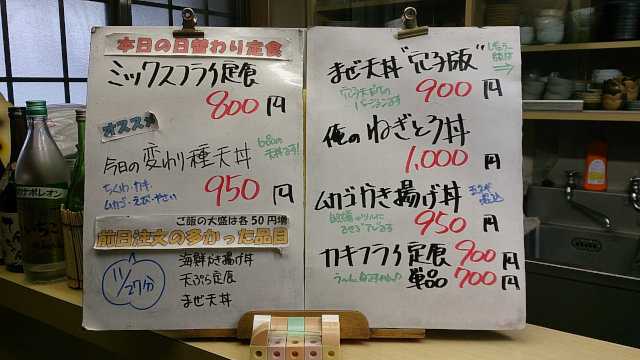 本日の日替わり定食
ミックスフライ定食
800円
オススメ
今日の変わり種天丼
6品の
天丼です!
ちくわ・カキ、
ムカゴ・えび・やさい
950円
ご飯の大盛は各50円増
前日注文の多かった品目
11/27分
海鮮かき揚げ丼
天ぷら定食
まぜ天丼
まぜ天丼"穴子版"
900円
俺のねぎとろ丼
1,000円
ムカゴかき揚げ丼
950円
カキフライ定食 900円
単品 700円
ナポレオン
いちご